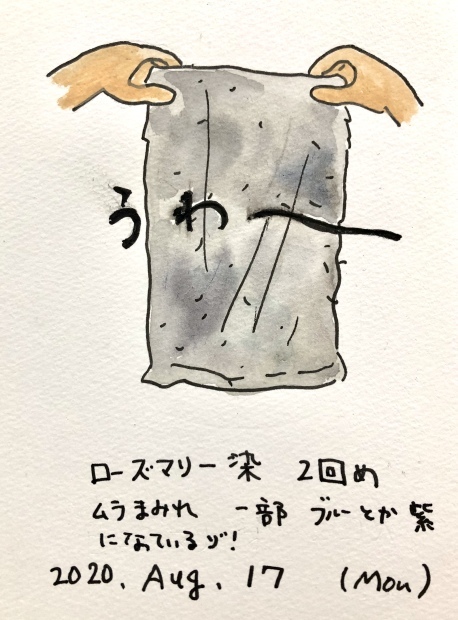 うわー
ローズマリー染 2回め
ムラまみれ 一部 ブルーとか 紫
になっているゾ!
2020. Aug. 17 (Mon)